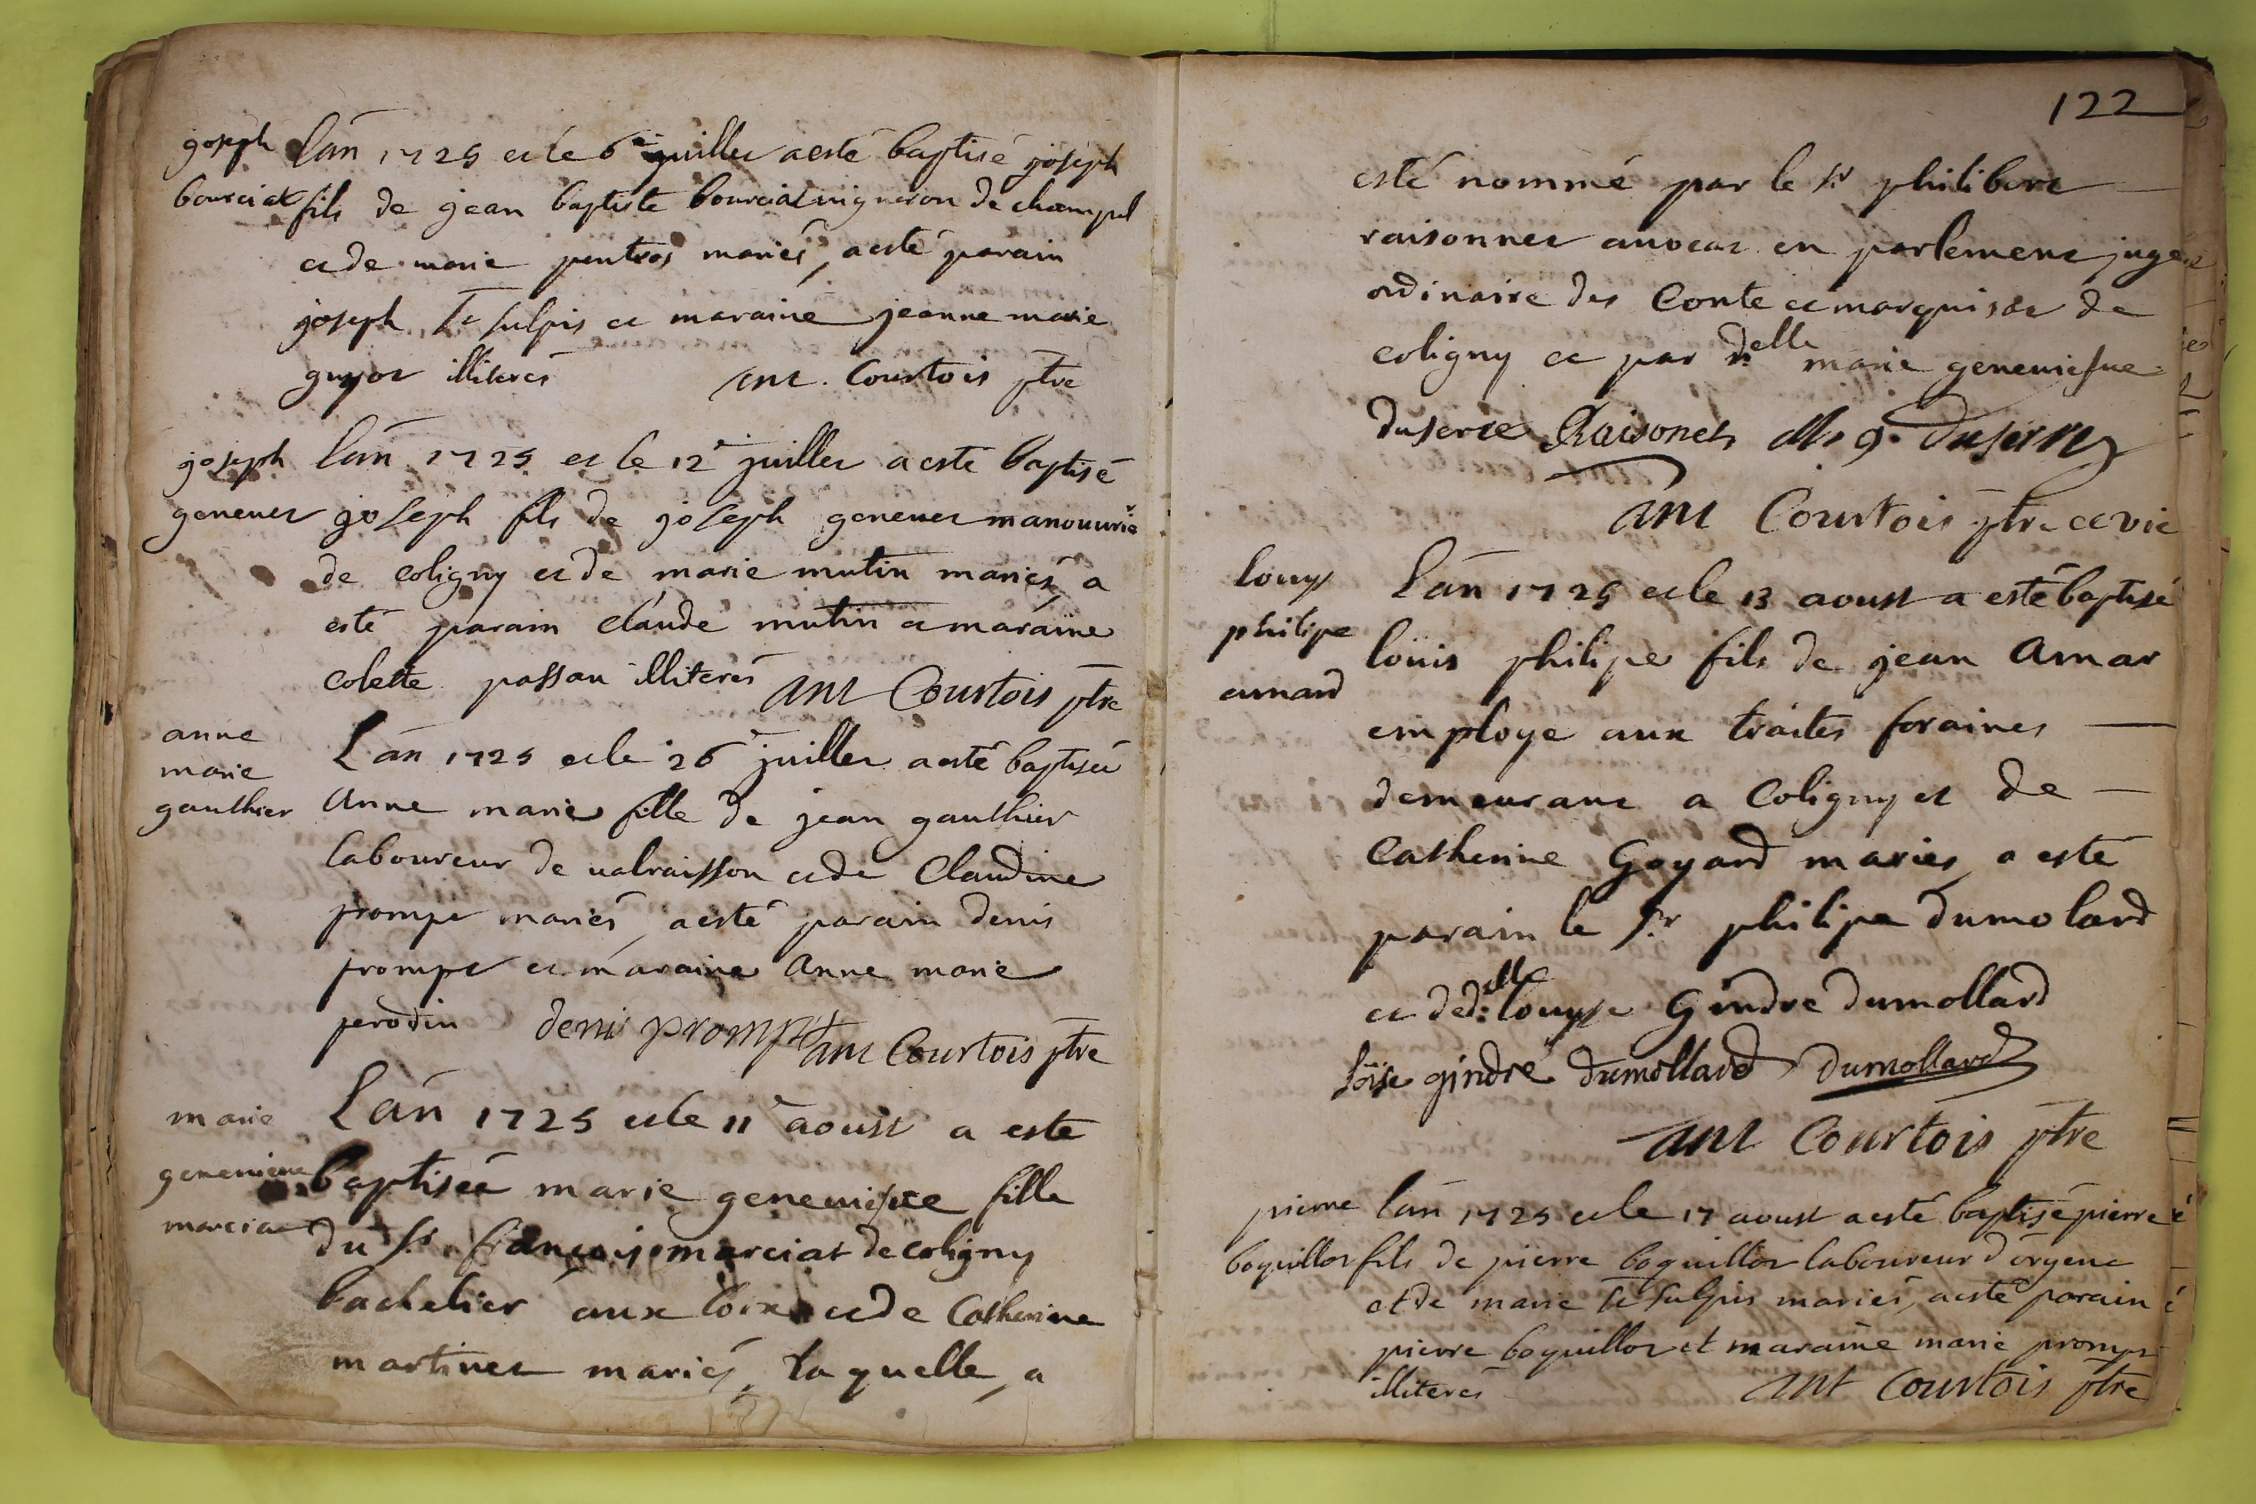 joseph
bourciat
L'an 1725 et le 6e juillet a esté baptisé joseph
fils de jean baptiste bourciat vigneron de champel
et de marie pentros mariés, a esté parain
joseph St sulpis et maraine jeanne marie
guyot illiterés ant. Courtois ptre
joseph
genevet
L'an 1725 et le 12e juillet a esté baptisé
joseph fils de joseph genevet manouvrie
de coligny et de marie mutin mariés, a
esté parain claude mutin et maraine
colette passau illiterés ant Courtois ptre
anne
marie
gauthier
L'an 1725 et le 26e juillet a esté baptisée
anne marie fille de jean gauthier
laboureur de valraisson et de Claudine
prompt mariés, a esté parain denis
prompt et maraine anne marie
perodin deni prompt ant Courtois ptre
marie
genevieve
marciat
L'an 1725 et le 11e aoust a este
baptisée marie geneviefve fille
du Sr françois marciat de coligny
bachelier aux loix et de Catherine
martinet mariés, laquelle a
122
esté nommé par le Sr philibert
raisonnet avocat en parlement juge
ordinaire des Conte et marquisat de
coligny et par delle marie geneviefve
duserre Raisonet M g. duserre
ant Courtois ptre et vic
louys
philipe
amard
L'an 1725 et le 13 aoust a esté baptisé
loüis philipe fils de jean amar
employe aux traites foraines
demeurant a Coligny et de
Catherine Goyard mariés, a esté
parain le Sr philipe dumolard
et ded:elle louyse Gindre dumollard
loïse gindre dumollard dumollard
ant Courtois ptre
pierre
boquillot
L'an 1725 et le 17 aoust a esté baptisé pierre
fils de pierre boquillot laboureur d'orgent
et de marie St sulpis mariés, a esté parain
pierre boquillot et maraine marie prompt
illiterés ant Courtois ptre